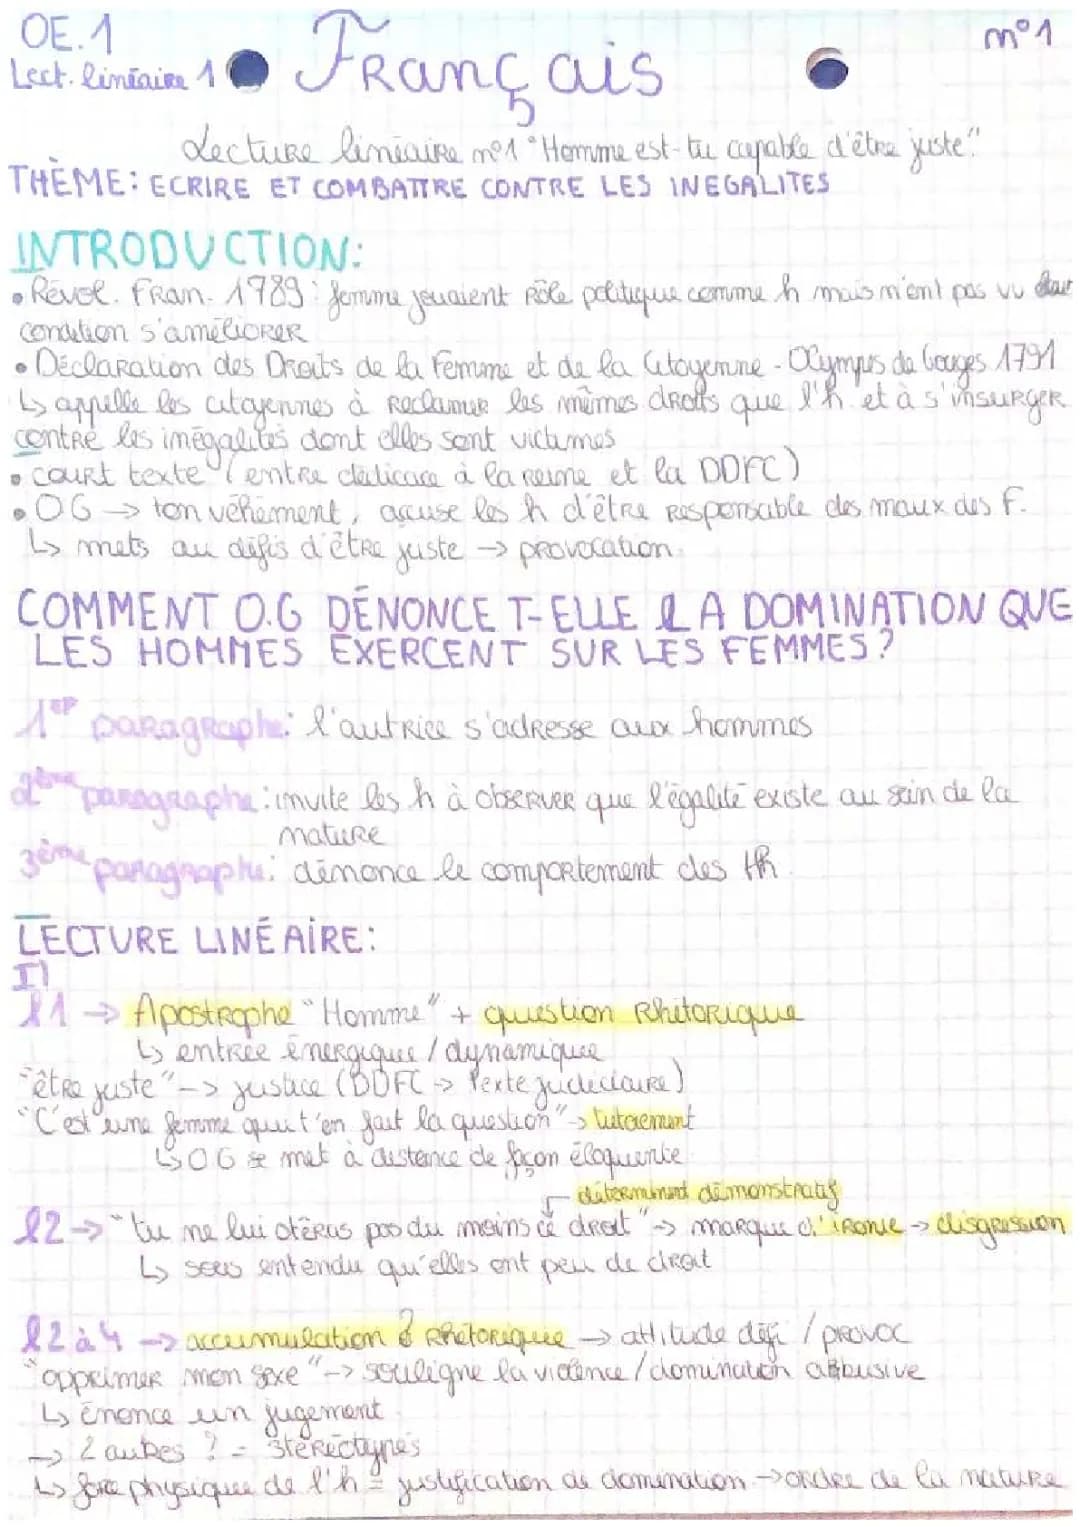 OE.1
n°1
Lect. linéaire 1
Français
Lecture linéaire n°1 "Homme est-tu capable d'être juste"
THÈME: ECRIRE ET COMBATTRE CONTRE LES INEGALITES
INTRODUCTION:
• Révol. Fran. 1789: femme jouaient rôle politique comme h mais n'ont pas vu leur
condition s'améliorer
• Déclaration des Droits de la Femme et de la Citoyenne - Olymps de Gouges 1791
↳ appelle les citoyennes à réclamer les mêmes droits que l'h. et à s'insurger
contre les inégalités dont elles sont victimes
• court texte (entre dédicace à la reine et la DDFC)
• OG → ton véhément, accuse les h d'être responsable des maux des f.
↳ mets au défis d'être juste → provocation.
COMMENT O.G DÉNONCE T-ELLE LA DOMINATION QUE
LES HOMMES EXERCENT SUR LES FEMMES?
1er paragraphe: l'autrice s'adresse aux hommes
2ème paragraphe: invite les h à observer que l'égalité existe au sein de la
nature
3ème paragraphe: dénonce le comportement des h.
LECTURE LINÉAIRE:
I)
l1 → Apostrophe "Homme" + question rhétorique
↳ entrée énergique / dynamique
"être juste" --> justice (DDFC -> Texte judiciaire)
"C'est une femme qui t'en fait la question" -> tutoiement
↳ OG se met à distance de façon éloquente
déterminant démonstratif
l2 -> "tu ne lui ôteras pas du moins ce droit" -> marque d'ironie -> disgression
↳ sous entendu qu'elles ont peu de droit
l2 à 4 -> accumulation ? Rhétorique -> attitude défi / provoc
"opprimer mon sexe" -> souligne la violence / domination abusive
↳ énonce un jugement
-> 2 autres ? = stéréotypes
↳ force physique de l'h = justification de domination -> ordre de la nature